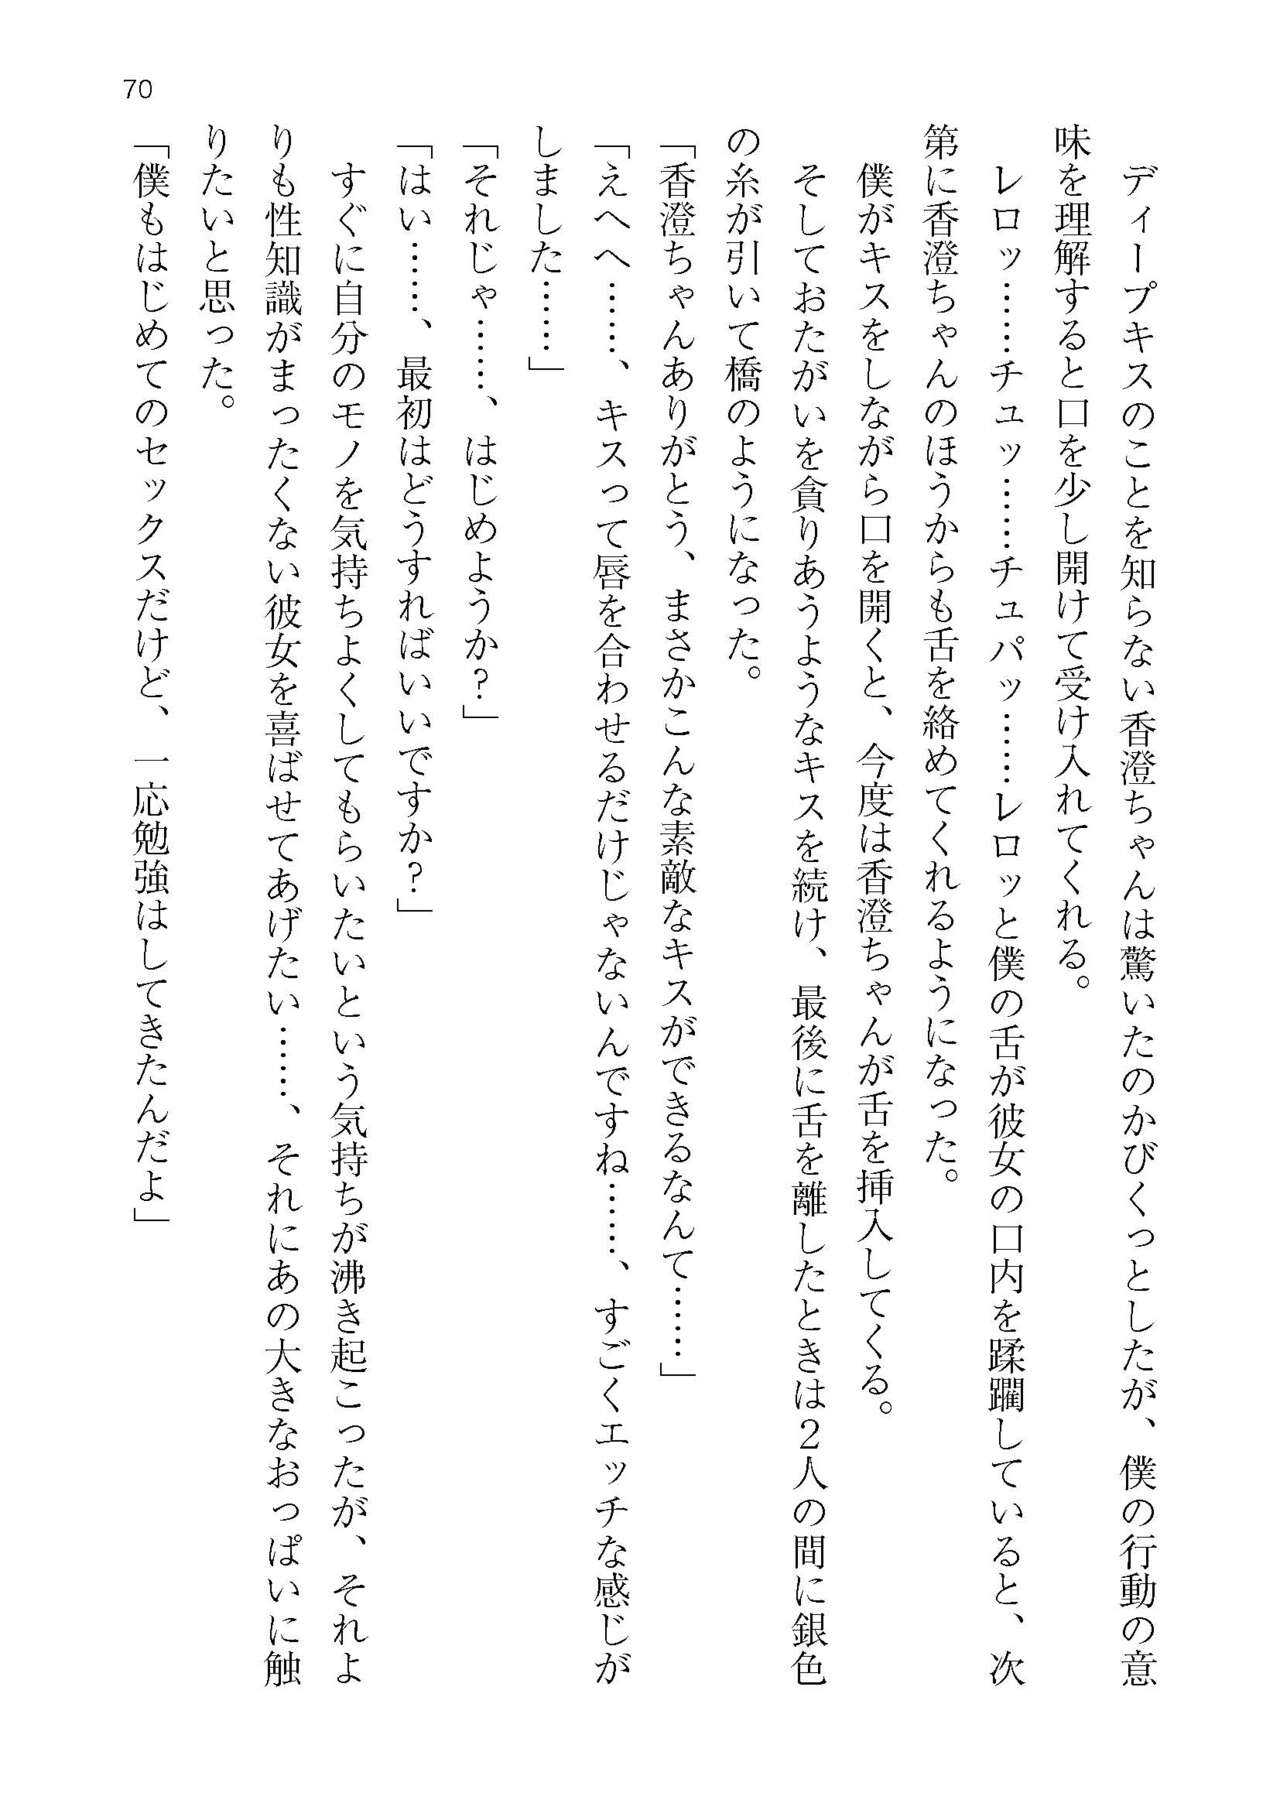 70
ディープキスのことを知らない香澄ちゃんは驚いたのかびくっとしたが、僕の行動の意
味を理解すると口を少し開けて受け入れてくれる。
レロッ……チュッ……チュパッ……レロッと僕の舌が彼女の口内を蹂躙していると、次
第に香澄ちゃんのほうからも舌を絡めてくれるようになった。
僕がキスをしながら口を開くと、今度は香澄ちゃんが舌を挿入してくる。
そしておたがいを貪りあうようなキスを続け、最後に舌を離したときは２人の間に銀色
の糸が引いて橋のようになった。
「香澄ちゃんありがとう、まさかこんな素敵なキスができるなんて……」
「えへへ……、キスって唇を合わせるだけじゃないんですね……、すごくエッチな感じが
しました……」
「それじゃ……、はじめようか？」
「はい……、最初はどうすればいいですか？」
すぐに自分のモノを気持ちよくしてもらいたいという気持ちが沸き起こったが、それよ
りも性知識がまったくない彼女を喜ばせてあげたい……、それにあの大きなおっぱいに触
りたいと思った。
「僕もはじめてのセックスだけど、一応勉強はしてきたんだよ」